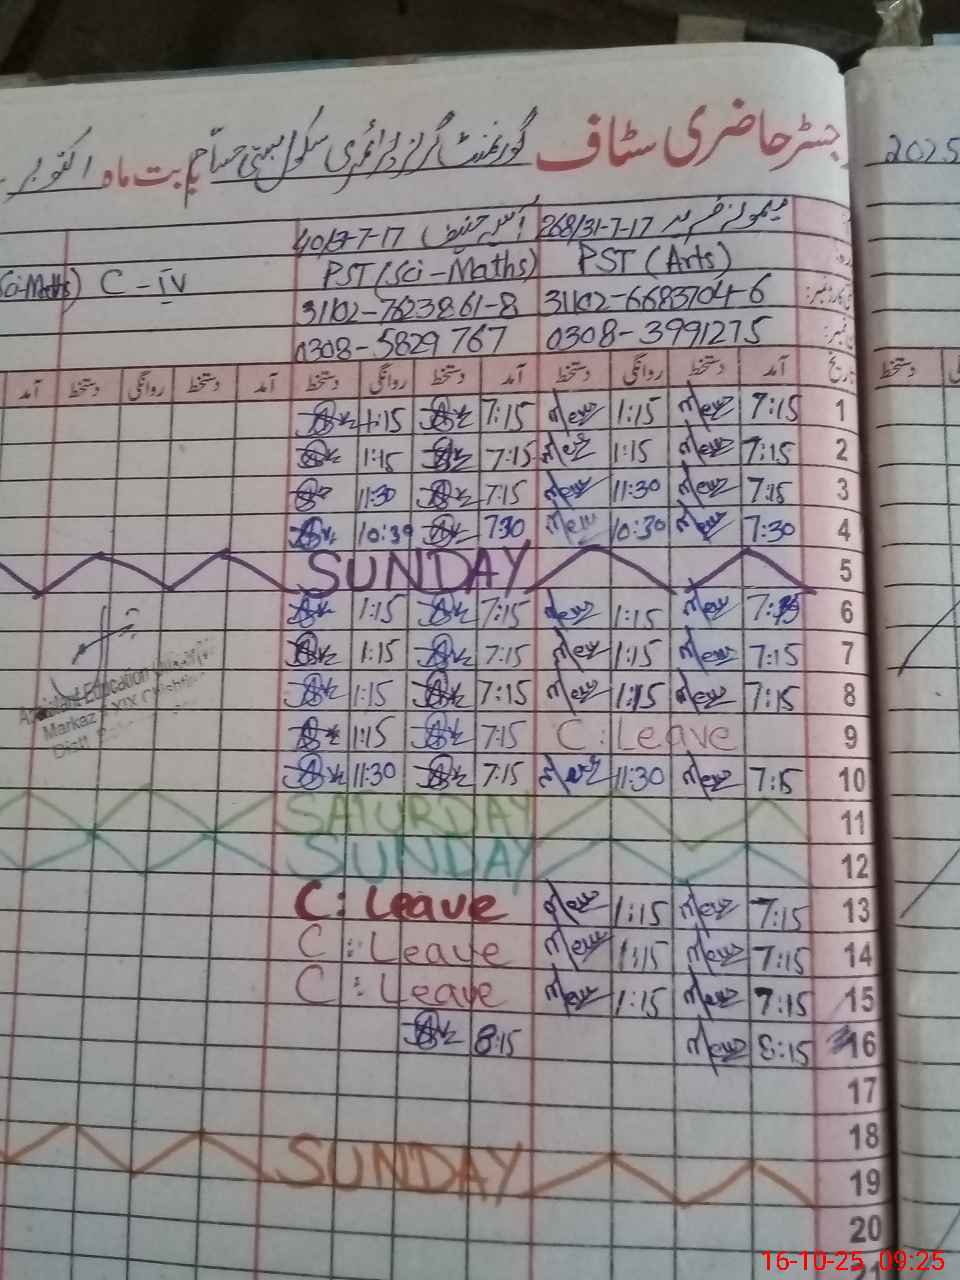 رجسٹر حاضری سٹاف گورنمنٹ گرلز پرائمری سکول بستی بابت ماہ اکتوبر 2025
268/31-7-17 40/
7-7-17
PST (Arts) PST (Sci-Maths) C-IV (Sci-Maths)
31102-6683704-6 31102-7623861-8
0308-3991275 0308-5829767
تاریخ آمد دستخط روانگی دستخط آمد دستخط روانگی دستخط آمد دستخط روانگی دستخط آمد دستخط
1 7:15 1:15 7:15 1:15
2 7:15 1:15 7:15 1:15
3 7:15 11:30 7:15 11:30
4 7:30 10:30 730 10:30
5 SUNDAY
6 1:15 7:15 1:15
7 7:15 1:15 7:15 1:15
8 7:15 1:15 7:15 1:15
9 C: Leave 7:15 1:15
10 7:15 11:30 7:15 11:30
11 SATURDAY
12 SUNDAY
13 7:15 1:15 C: Leave
14 7:15 1:15 C: Leave
15 7:15 1:15 C: Leave
16 8:15 8:15
17
18
19 SUNDAY
20
Assistant Education
Markaz
Distt.
16-10-25 09:25